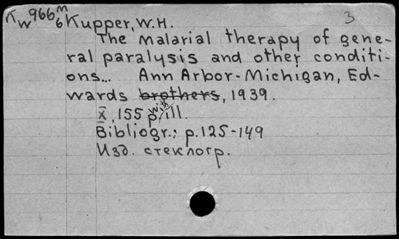 Kw 966 m/6 3
Kupper, W.H.
The malarial therapy of gene-
ral paralysis and other conditi-
ons... Ann Arbor-Michigan, Ed-
wards brothers, 1939.
x̅, 155 p. with ill.
Bibliogr.: p.125-149
Изд. стеклогр.